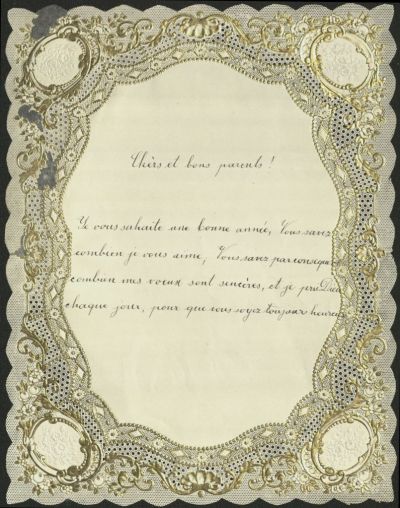 Chèrs et bons parents!
Je vous suhaite une bonne année, Vous savez
combien je vous aime, Vous savez par conséque
combien mes vœux sont sincères, et je prie Dieu
chaque jour, pour que vous soyez toujour heureu